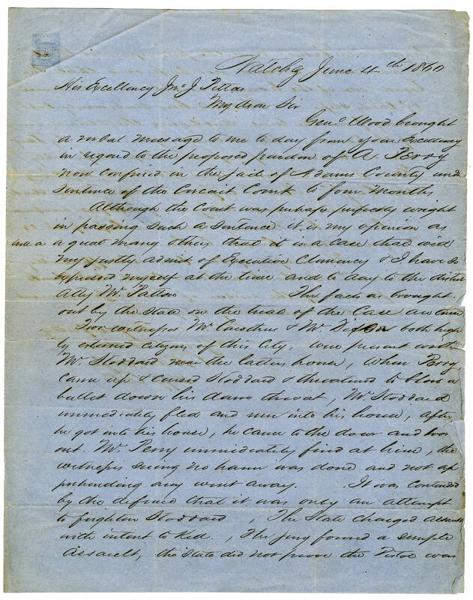 Natchez June 4th 1860
His Excellency Jno J Pettus
My dear Sir
Genl Wood brought
a verbal message to me to day from your Excellency
in regard to the proposed pardon of A Perry
now confined in the jail of Adams County under
sentence of the Circuit Court to four months
Although the Court was perhaps perfectly right
in passing such a sentence it is my opinion as
well as a great many others that it is a case that will
very justly admit of Executive Clemency & I have so
expressed myself at the time and to day to the district
atty Mr. The facts as brought
out by the State on the trial of the Case are these
Two witnesses Mr & Mr both high
ly esteemed citizens of this City, were present with
Mr Stoddard near the latters house, when Perry
came up & cursed Stoddard & threatened to blow a
bullet down his damn throat, Mr Stoddard
immediately fled and run into his house, after
he got into his house, he came to the door and looked
out. Mr. Perry immediately fired at him, the
witnesses seeing no harm was done and not ap
prehending any went away. It was contended
by the defence that it was only an attempt
to frighten Stoddard, The State charged assault
with intent to kill, The jury found a simple
assault, the State did not prove the Pistol was